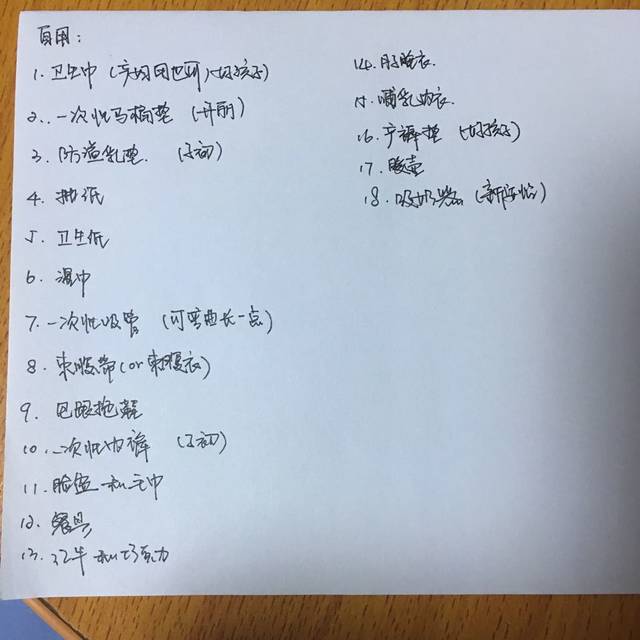 自用：
1. 卫生巾（产妇用也可）（好孩子）
2. 一次性马桶垫（开丽）
3. 防溢乳垫（子初）
4. 抽纸
5. 卫生纸
6. 湿巾
7. 一次性吸管（可弯曲长一点）
8. 束腹带（or束腹衣）
9. 包跟拖鞋
10. 一次性内裤（子初）
11. 脸盆和毛巾
12. 餐具
13. 红牛和巧克力
14. 月子服
15. 哺乳内衣.
16. 产褥垫（好孩子）
17. 暖壶
18. 吸奶器（新安怡）